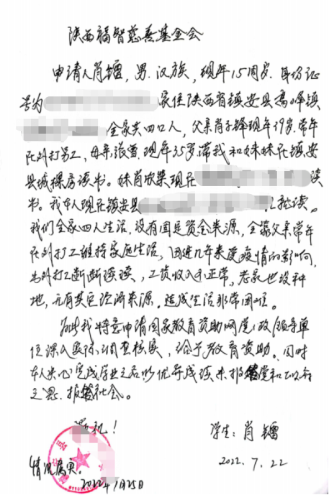 陕西福智慈善基金会
申请人肖镭，男，汉族，现年15周岁，身份证
号为 家住陕西省镇安县高峰镇
全家共四口人，父亲肖 现年39岁，常年
在外打工，母亲张 现年35岁带我和妹妹在镇安
县城租房读书。妹肖欣 现在 读
书。我本人现在镇安县 就读。
我们全家四人生活，没有固定资金来源，全靠父亲常年
在外打工维持家庭生活，因近几年来受疫情的影响，
在外打工断断续续，工资收入不正常，老家也没种
地，无有其它经济来源，造成生活非常困难。
为此我特意申请国家教育资助 ，政 领导单
位深入实际，调查核实，给予教育资助。同时
本人决心完成学业之后以优异成绩来报 和
之恩，报 社会。
此礼！ 学生：肖镭
情况属实。 2022.7.22
2022年7月25日